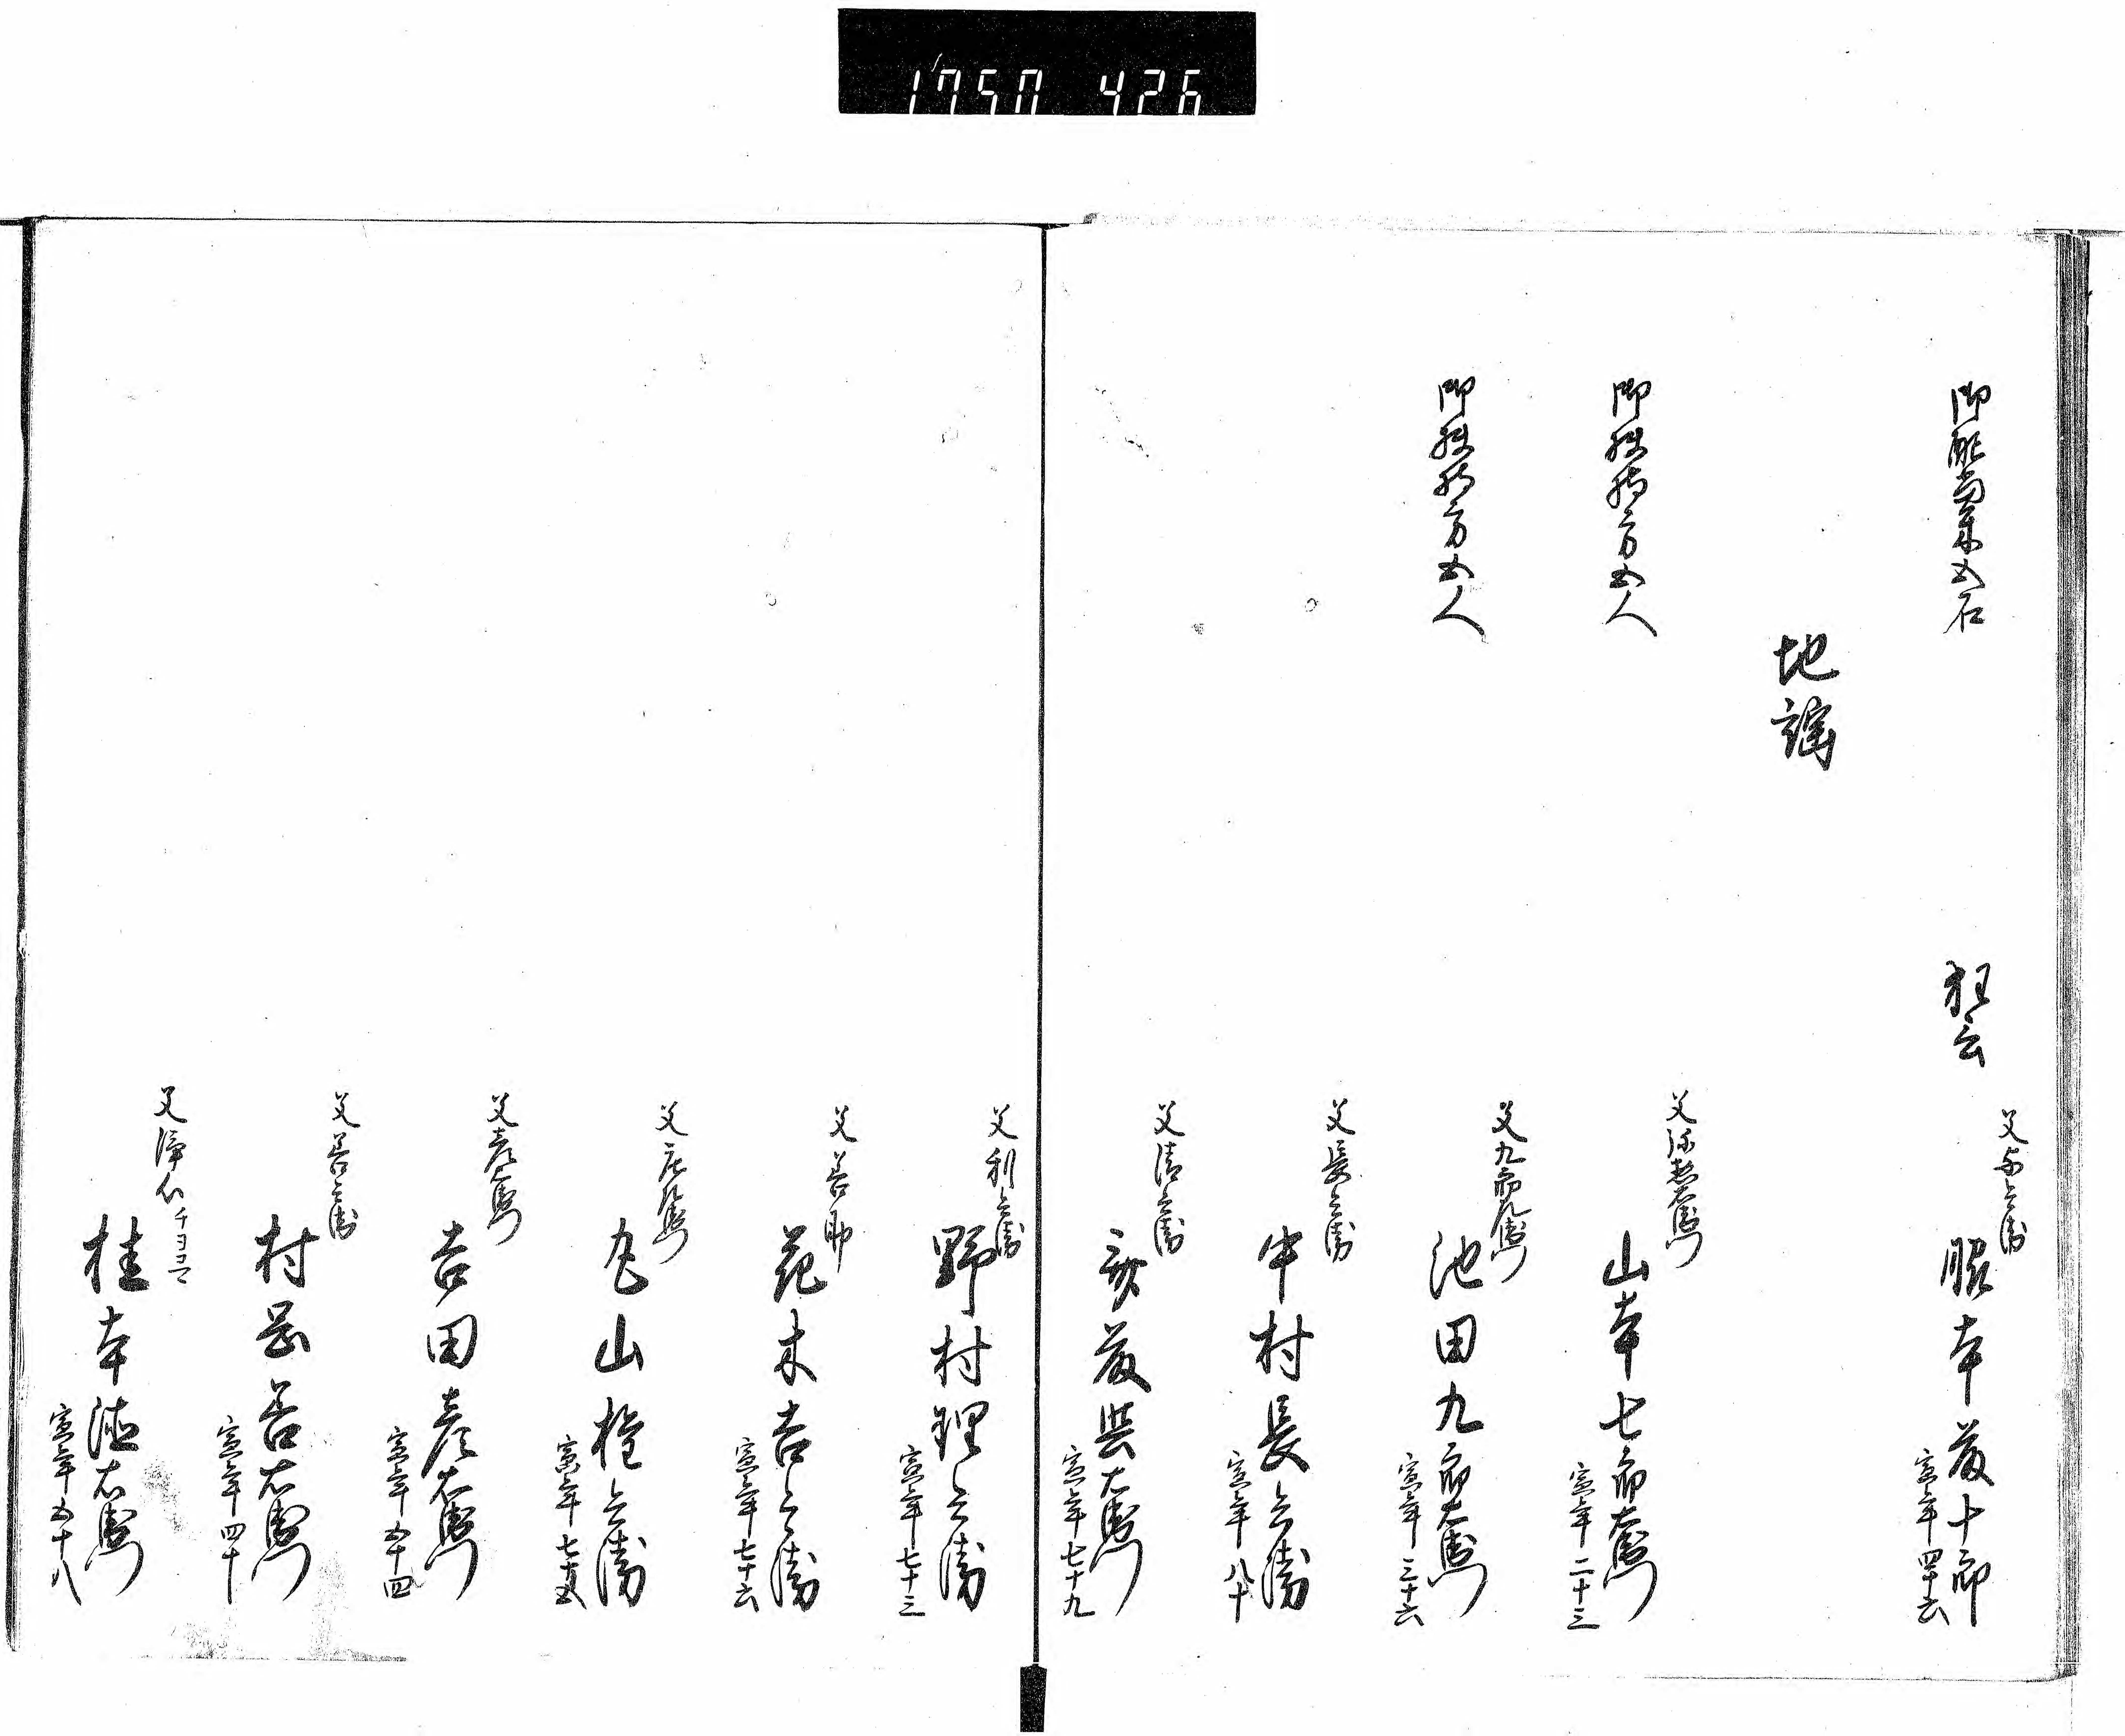 1750 426
御配当米五石
狂言
父与兵衛
服本藤十郎
寅年四十六
地謡
御扶持方五人
父弥惣右衛門
山本七郎右衛門
寅年二十三
御扶持方五人
父九郎左衛門
池田九郎右衛門
寅年三十六
父長兵衛
中村長兵衛
寅年八十
父清兵衛
右衛門
寅年七十九
父利兵衛
野村理兵衛
寅年七十三
父善助
花木吉兵衛
寅年七十六
父庄左衛門
丸山権兵衛
寅年七十五
父彦右衛門
吉田彦右衛門
寅年五十四
父善兵衛
村岡善右衛門
寅年四十
父浄仙
桂本徳右衛門
寅年五十八